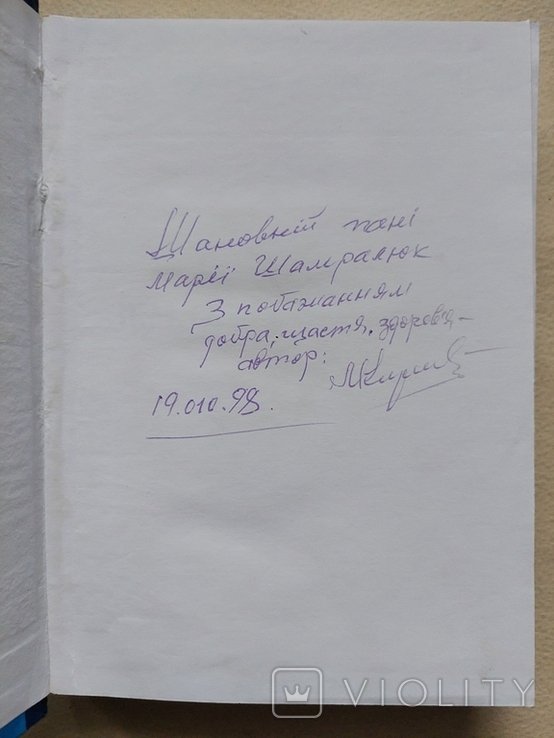 Шановній пані
Марії Шамралюк
З побажанням
добра, щастя, здоров'я –
автор:
19.010.98.
VIOLITY